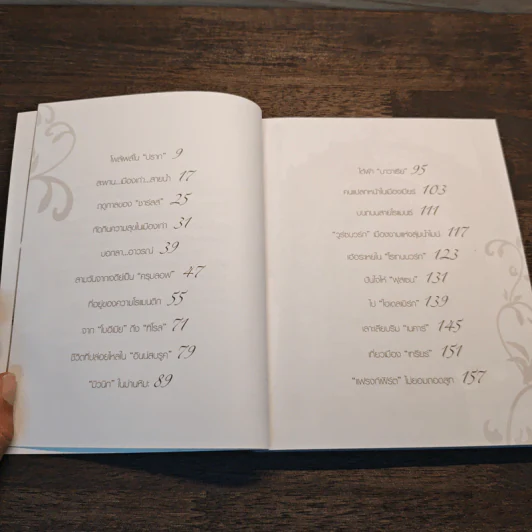 โผล่พลิ้วใน "ปราก" 9
สะพาน...เมืองเก่า...สายน้ำ 17
ฤดูกาลของ "ชาร์ลส์" 25
31
บอกลา...อาวรณ์ 39
สามวันจากเจดีย์เป็น "ครุมลอฟ" 47
ที่อยู่ของความโรแมนติก 55
จาก "โบฮีเมีย" ถึง "ทีโรล" 71
ชีวิตที่ปล่อยไหลใน "อินน์สบรูค" 79
"มิวนิก" ในม่านหิมะ 89
ใต้ฟ้า "บาวาเรีย" 95
คนแปลกหน้าในเมืองเบียร์ 103
บนถนนสายโรแมนติก 111
"วูร์ซบวร์ก" เมืองงามแห่งลุ่มน้ำไมน์ 117
เฮฮาระเหยใน "โรเทนบวร์ก" 123
ปันใจให้ "ฟุสเซน" 131
ใน "ไฮเดลเบิร์ก" 139
เลาะเลียบริม "เนคาร์" 145
เที่ยวเมือง "เทรียร์" 151
"แฟรงก์เฟิร์ต" ไม่ยอมถอดสูท 157